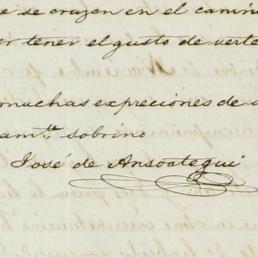 e se cruzen en el camin
er tener el gusto de verte
muchas expreciones de
am.te sobrino
José de Ansoategui